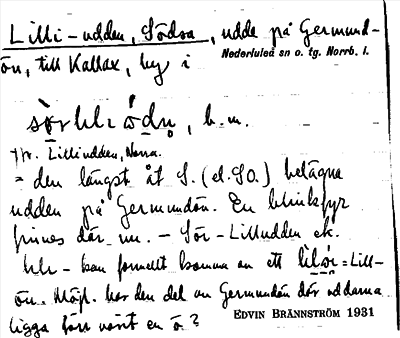 Lilli-udden, Södra, udde på Germund-
ön, till Kallax, by i
Nederluleå sn o. tg. Norrb. l.
b.m.
Jfr. Lilliudden, Norra.
= den längst åt S. (el. SO.) belägna
udden på Germundön. En blinkfyr
finnes där nu. – Sör-Lilludden ek.
- kan formellt komma av ett = Lill-
ön. Möjl. har den del av Germundön där uddarna
ligga förr varit en ö?
EDVIN BRÄNNSTRÖM 1931